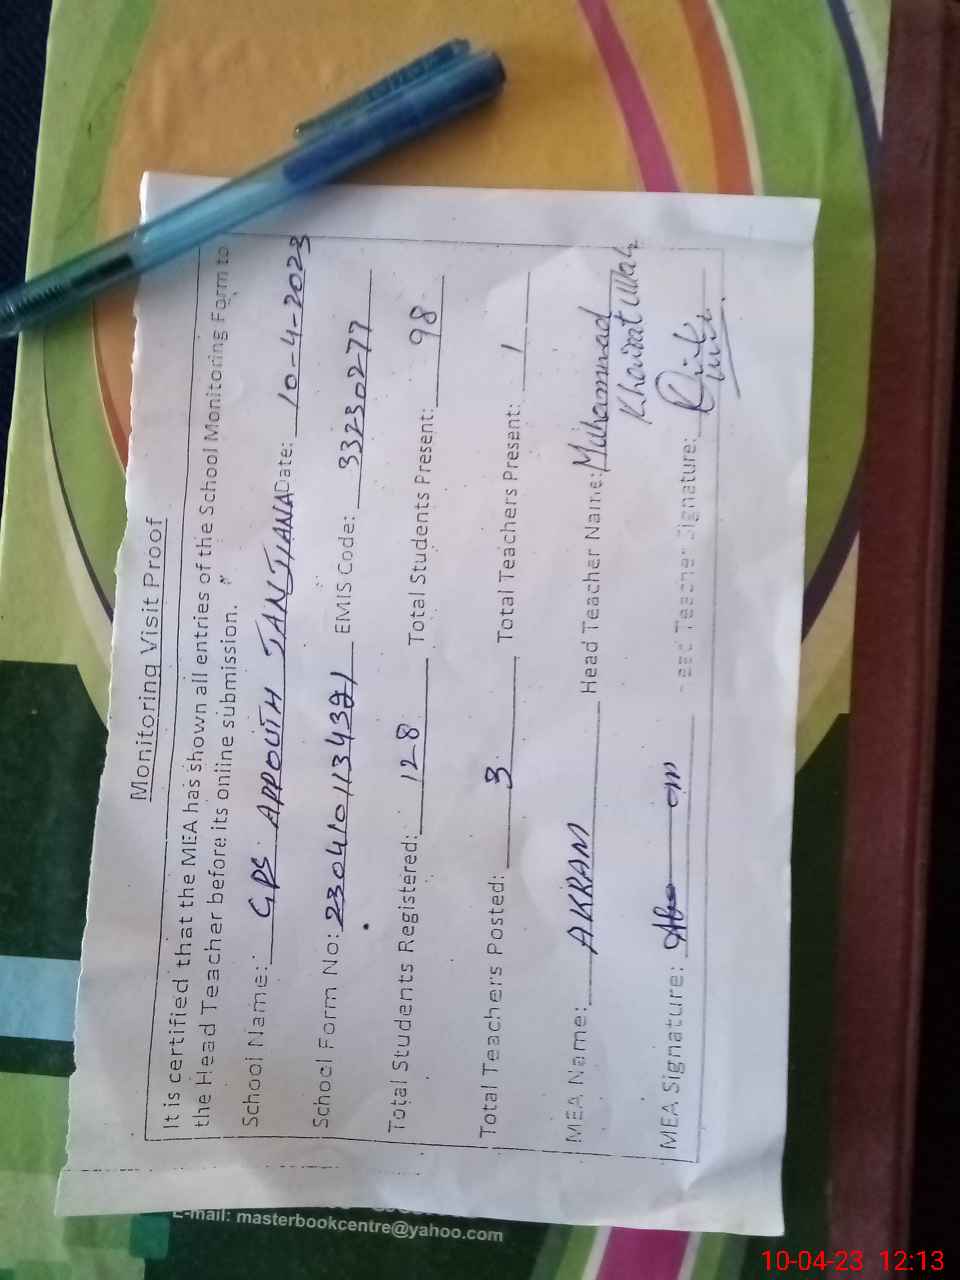 Monitoring Visit Proof
It is certified that the MEA has shown all entries of the School Monitoring Form to
the Head Teacher before its online submission.
School Name: GPS APPOUTH JANJIANA Date: 10-4-2023
School Form No: EMIS Code: 33230277
Total Students Registered: 128 Total Students Present: 98
Total Teachers Posted: 3 Total Teachers Present: 1
MEA Name: AKRAM Head Teacher Name: Muhammad
Khairat Ullah
MEA Signature: Head Teacher Signature:
E-mail: masterbookcentre@yahoo.com
10-04-23 12:13